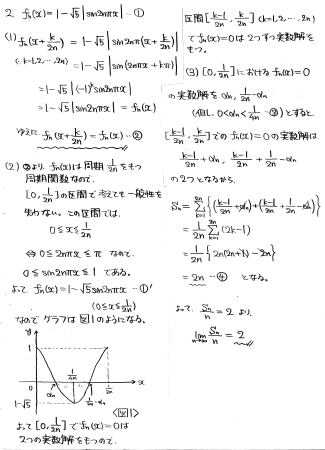 2 fn(x) = 1-√5 | sin2nπx | -①
(1) fn(x+k/2n) = 1-√5 | sin2nπ(x+k/2n) |
(∵k=1,2,…,2n) = 1-√5 | sin(2nπx + kπ) |
= 1-√5 | (-1)^k sin2nπx |
= 1-√5 | sin2nπx | = fn(x)
ゆえに fn(x+k/2n) = fn(x) -②
(2) ②より fn(x)は周期 1/2n をもつ
周期関数なので、
[0, 1/2n]の区間で考えても一般性を
失わない。この区間では
0≦x≦1/2n
⇔ 0≦2nπx≦π なので
0≦sin2nπx≦1 である。
よって fn(x) = 1-√5 sin2nπx -①'
(0≦x≦1/2n)
なので グラフは 図1のようになる。
y
1
0
1-√5
αn
1/4n
1/2n - αn
1/2n
x
<図1>
よって [0, 1/2n]で fn(x)=0は
2つの実数解をもつので、
区間[k-1/2n, k/2n] (k=1,2,…,2n)
で fn(x)=0は2つずつ実数解を
もつ。
(3) [0, 1/2n]における fn(x)=0
の実数解を αn, 1/2n - αn
(但し、0<αn<1/4n -③)とすると
[k-1/2n, k/2n]での fn(x)=0の実数解は
k-1/2n + αn, k-1/2n + 1/2n - αn
の2つとなるから、
Sn = Σ(k=1→2n) {(k-1/2n + αn) + (k-1/2n + 1/2n - αn)}
= 1/2n Σ(k=1→2n) (2k-1)
= 1/2n {2n(2n+1) - 2n}
= 2n -④ となる。
よって、Sn/n = 2 より、
lim n→∞ Sn/n = 2